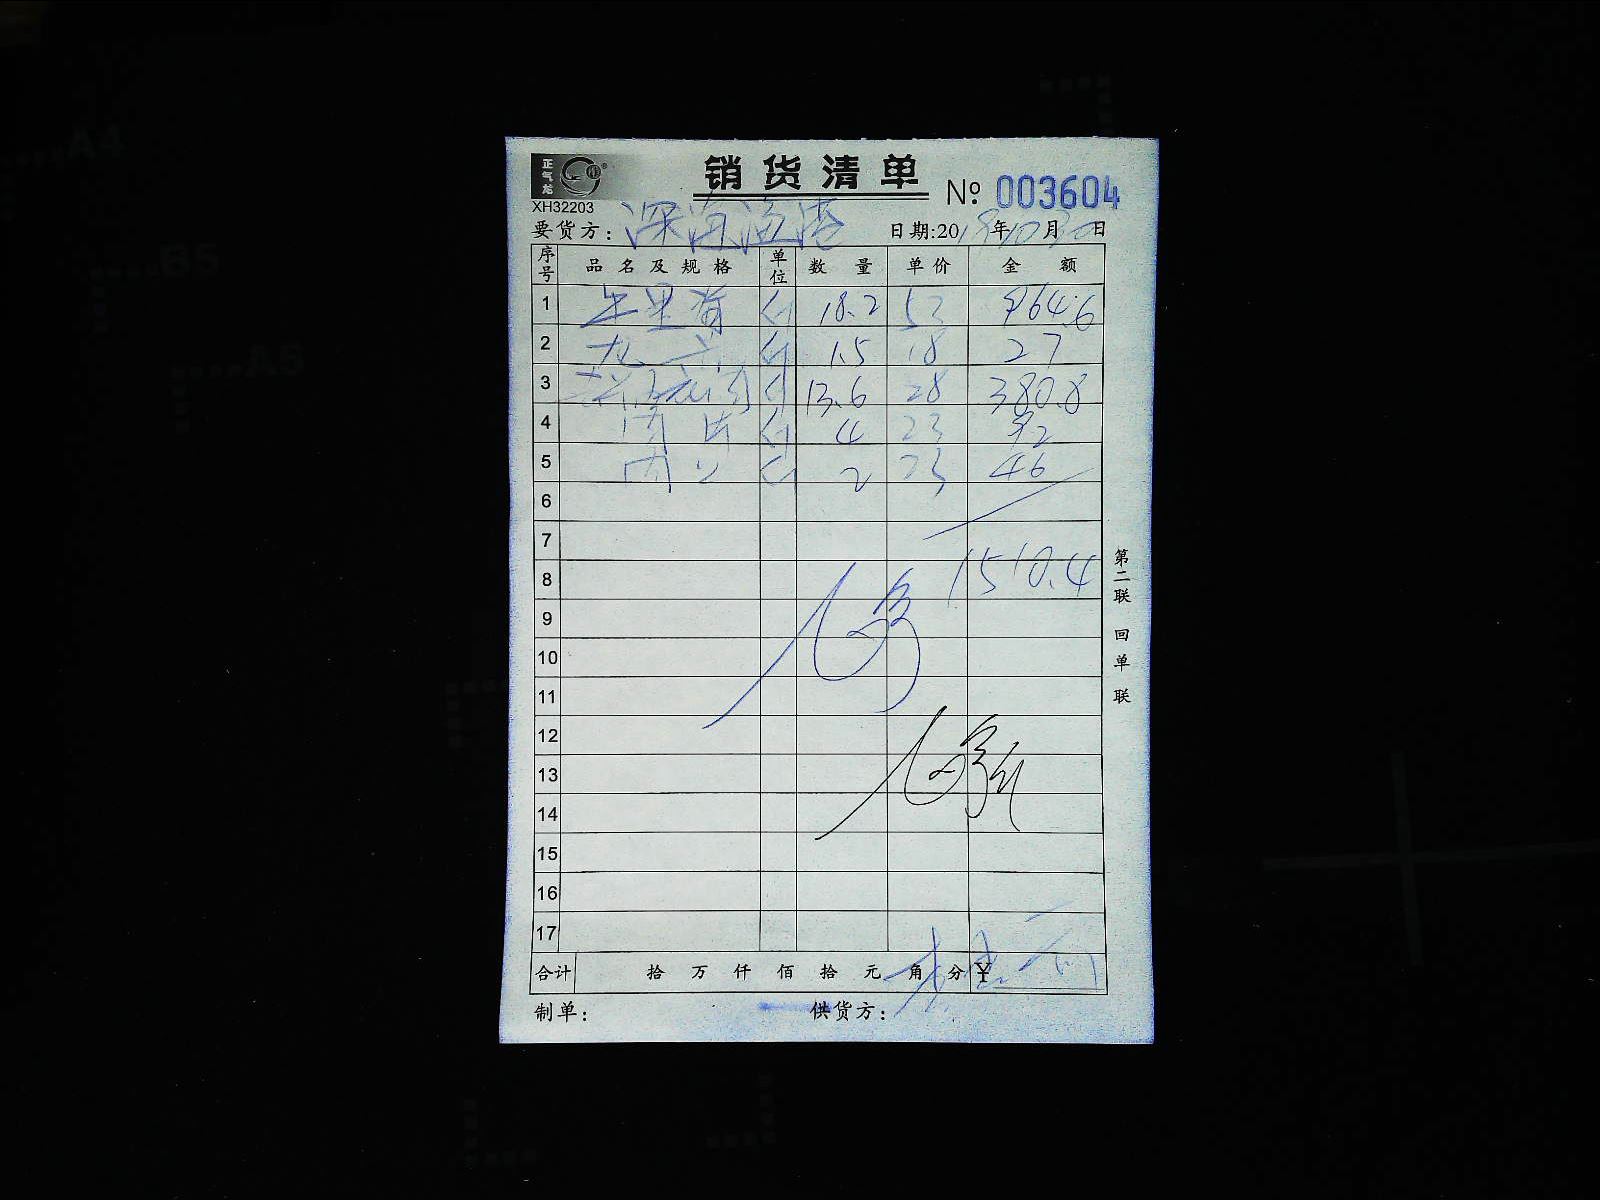 正气龙
XH32203
销货清单
№ 003604
要货方：深海渔港
日期:2019年10月30日
序号 品名及规格 单位 数量 单价 金额
1 斤 18.2 53 964.6
2 斤 1.5 18 27
3 斤 13.6 28 380.8
4 肉片 斤 4 23 92
5 肉 斤 2 23 46
6
7
8 1510.4
9
10
11
12
13
14
15
16
17
合计 拾 万 仟 佰 拾 元 角 分 ¥
制单： 供货方：
第二联 回单联
A4
B5
A5